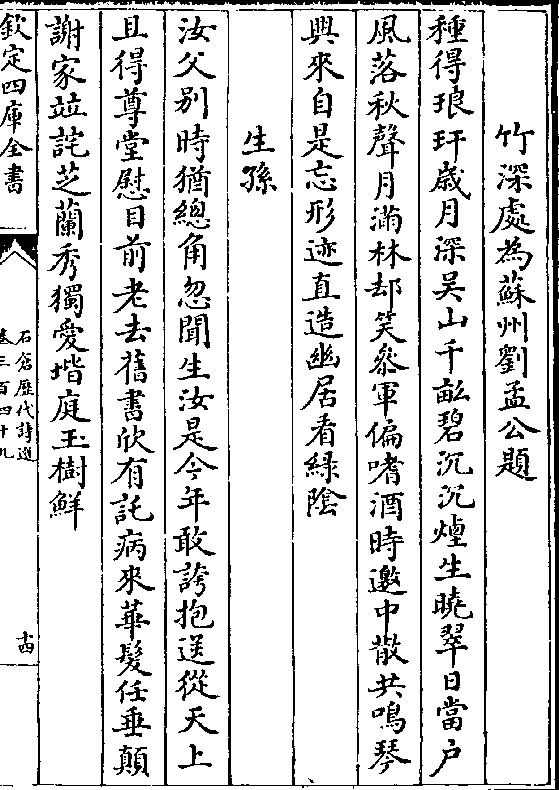 竹深處為蘇州劉孟公題
種得琅玕歲月深吳山千畝碧沉沉煙生曉翠日當户
風落秋聲月滿林却笑叅軍偏嗜酒時邀中散共鳴琴
興來自是忘形迹直造幽居看緑陰
生孫
汝父别時猶總角忽聞生汝是今年敢誇抱送從天上
且得尊堂慰目前老去舊書欣有託病來華髮任垂顛
謝家竝詫芝蘭秀獨愛堦庭玉樹鮮
欽定四庫全書
石倉歷代詩選
卷三百四十九
十四